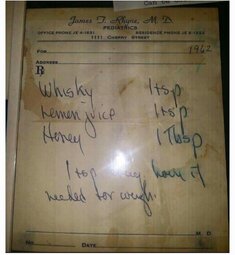 James T. Rhyne, M. D.
PEDIATRICS
OFFICE PHONE JE 4-1851 RESIDENCE PHONE JE 6-1223
1111 CHERRY STREET
FOR 1962
ADDRESS
℞
Whisky 1 tsp
Lemon juice 1 tsp
Honey 1 Tbsp
1 tsp every hour if
needed for cough
M. D.
No. DATE